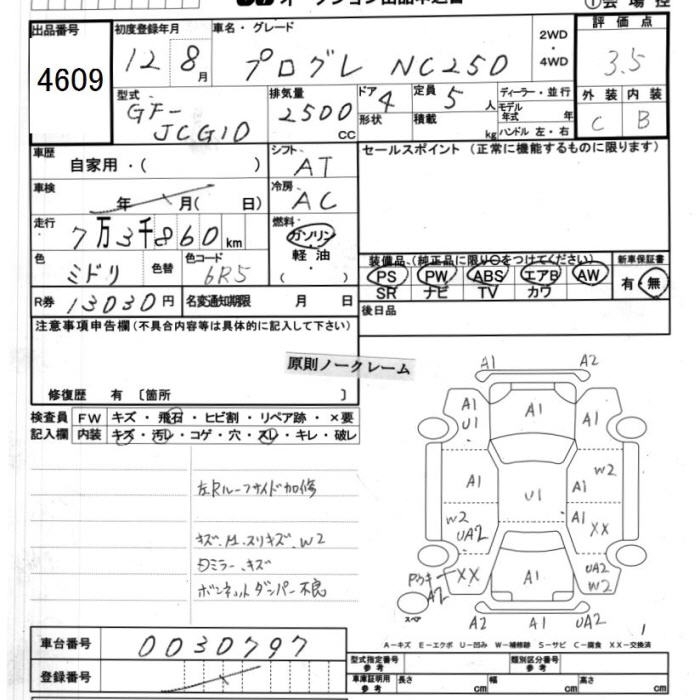 出品番号
4609
初度登録年月
12 8月
車名・グレード
プログレ NC250
2WD
・
4WD
評価点
3.5
型式
GF-
JCG10
排気量
2500
cc
ドア 4
形状
定員 5 人
積載 kg
ディーラー・並行
モデル
年式 年
ハンドル 左・右
外装 内装
C B
車歴
自家用・( )
シフト
AT
セールスポイント (正常に機能するものに限ります)
車検
年 月( 日)
冷房
AC
走行
7万3千860km
燃料
ガソリン
軽油
( )
色
ミドリ
色替
色コード
6R5
装備品 (純正品に限り○をつけてください)
PS PW ABS エアB AW
SR ナビ TV カワ
新車保証書
有・無
R券 13030円
名変通知期限 月 日
後日品
注意事項申告欄 (不具合内容等は具体的に記入して下さい)
原則ノークレーム
修復歴 有 〔箇所 〕
検査員
記入欄
FW キズ・飛石・ヒビ割・リペア跡・×要
内装 キズ・汚レ・コゲ・穴・スレ・キレ・破レ
左Rルーフサイド加修
ボンネットダンパー不良
A1 A2
A1 A1 A1
U1
A1 U1 A1 W2
W2 A1 XX
UA2
XX A1 UA2
W2
A2
スペア
A2 A1 UA2
1
A－キズ E－エクボ U－凹み W－補修跡 S－サビ C－腐食 XX－交換済
車台番号 0030797
登録番号
型式指定番号
参考
類別区分番号
参考
車庫証明用
参考
長さ cm 幅 cm 高さ cm